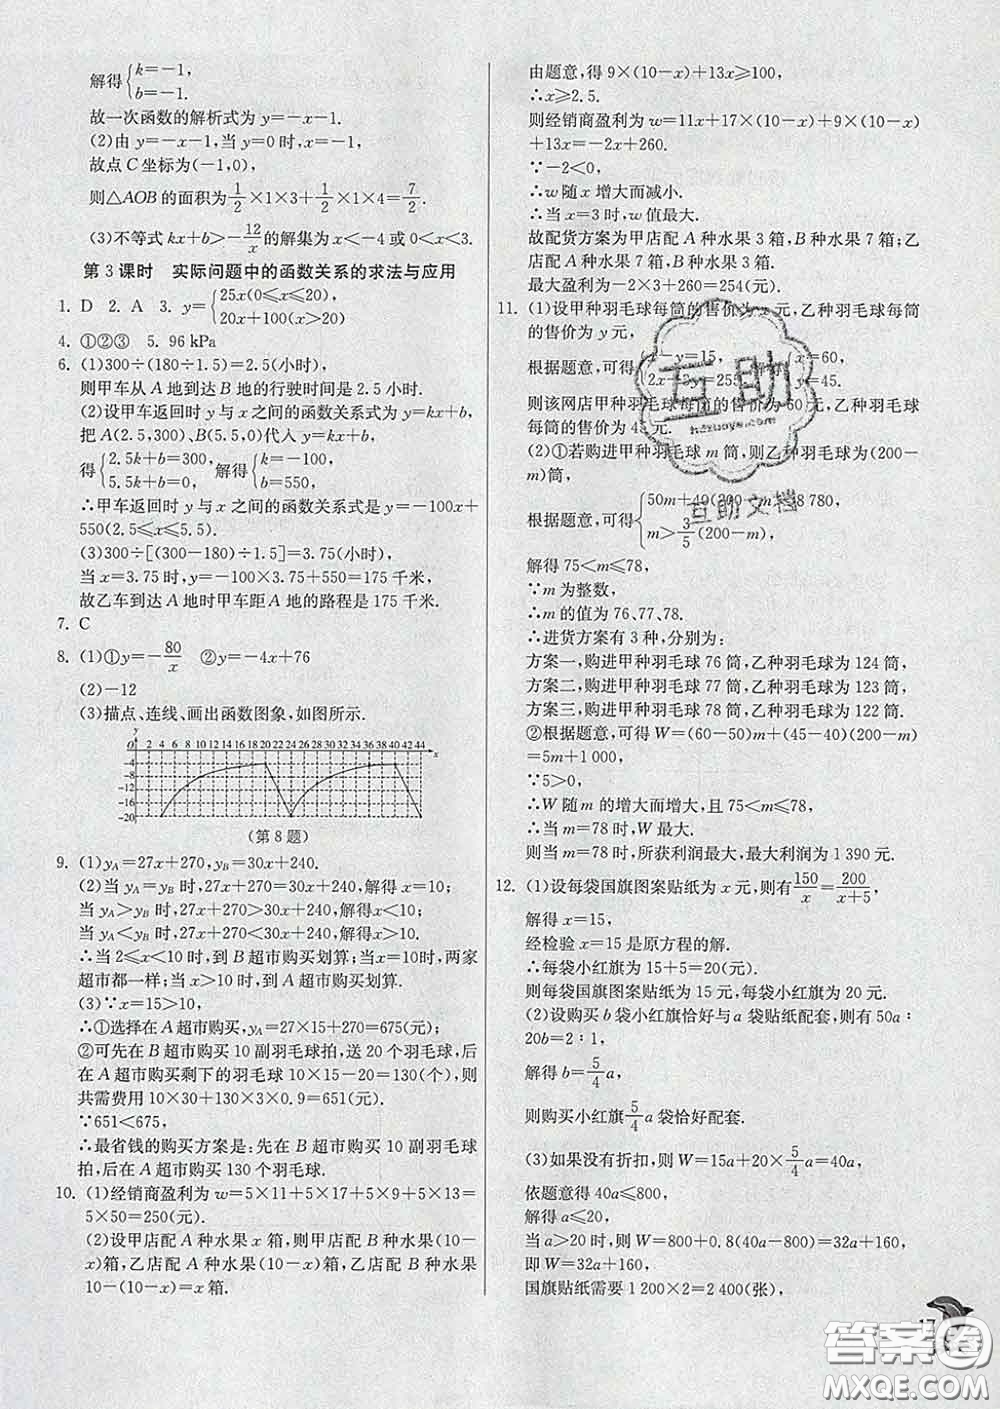 解得{k=-1,
b=-1.
故一次函数的解析式为 y=-x-1.
(2)由 y=-x-1,当 y=0 时,x=-1,
故点 C 坐标为(-1,0),
则△AOB 的面积为1/2×1×3+1/2×1×4=7/2.
(3)不等式 kx+b>-12/x的解集为 x<-4 或 0<x<3.
第 3 课时 实际问题中的函数关系的求法与应用
1. D 2. A 3. y={25x(0⩽x⩽20),
20x+100(x>20)
4. ①②③ 5. 96 kPa
6. (1)300÷(180÷1.5)=2.5(小时).
则甲车从 A 地到达 B 地的行驶时间是 2.5 小时.
(2)设甲车返回时 y 与 x 之间的函数关系式为 y=kx+b,
把 A(2.5,300)、B(5.5,0)代入 y=kx+b,
得{2.5k+b=300, 解得{k=-100,
5.5k+b=0, b=550,
∴甲车返回时 y 与 x 之间的函数关系式是 y=-100x+
550(2.5⩽x⩽5.5).
(3)300÷[(300-180)÷1.5]=3.75(小时),
当 x=3.75 时,y=-100×3.75+550=175 千米,
故乙车到达 A 地时甲车距 A 地的路程是 175 千米.
7. C
8. (1)①y=-80/x ②y=-4x+76
(2)-12
(3)描点、连线、画出函数图象,如图所示.
y
O 2 4 6 8 10 12 14 16 18 20 22 24 26 28 30 32 34 36 38 40 42 44 x
-4
-8
-12
-16
-20
(第 8 题)
9. (1)yA=27x+270,yB=30x+240.
(2)当 yA=yB 时,27x+270=30x+240,解得 x=10;
当 yA>yB 时,27x+270>30x+240,解得x<10;
当 yA<yB 时,27x+270<30x+240,解得x>10;
∴当 2⩽x<10 时,到 B 超市购买划算;当 x=10时,两家
超市都一样;当 x>10 时,到 A 超市购买划算.
(3)∵x=15>10,
∴①选择在 A 超市购买,yA=27×15+270=675(元);
②可先在 B 超市购买 10 副羽毛球拍,送 20 个羽毛球,后
在 A 超市购买剩下的羽毛球 10×15-20=130(个),则
共需费用 10×30+130×3×0.9=651(元).
∵651<675,
∴最省钱的购买方案是:先在 B 超市购买 10 副羽毛球
拍,后在 A 超市购买 130 个羽毛球.
10. (1)经销商盈利为 w=5×11+5×17+5×9+5×13=
5×50=250(元).
(2)设甲店配 A 种水果 x 箱,则甲店配 B 种水果(10-
x)箱,乙店配 A 种水果(10-x)箱,乙店配 B 种水果
10-(10-x)=x 箱.
由题意,得 9×(10-x)+13x⩾100,
∴x⩾2.5.
则经销商盈利为 w=11x+17×(10-x)+9×(10-x)+
13x=-2x+260.
∵-2<0,
∴w 随 x 增大而减小.
∴当 x=3 时,w 值最大.
故配货方案为甲店配 A 种水果 3 箱,B 种水果 7 箱;乙
店配 A 种水果 7 箱,B 种水果 3 箱.
最大盈利为-2×3+260=254(元).
11. (1)设甲种羽毛球每筒的售价为 x 元,乙种羽毛球每筒
的售价为 y 元,
根据题意,可得{x-y=15, x=60,
2x+3y=255 y=45.
则该网店甲种羽毛球每筒的售价为 60 元,乙种羽毛球
每筒的售价为 45 元.
(2)①若购进甲种羽毛球 m 筒,则乙种羽毛球为(200-
m)筒,
根据题意,可得{50m+40(200-m)⩽8 780,
m>3/5(200-m),
解得 75<m⩽78,
∵m 为整数,
∴m 的值为 76、77、78.
∴进货方案有 3 种,分别为:
方案一,购进甲种羽毛球 76 筒,乙种羽毛球为 124 筒,
方案二,购进甲种羽毛球 77 筒,乙种羽毛球为 123 筒,
方案三,购进甲种羽毛球 78 筒,乙种羽毛球为 122 筒.
②根据题意,可得 W=(60-50)m+(45-40)(200-m)
=5m+1 000,
∵5>0,
∴W 随 m 的增大而增大,且 75<m⩽78,
∴当 m=78 时,W 最大.
则当 m=78 时,所获利润最大,最大利润为 1 390 元.
12. (1)设每袋国旗图案贴纸为 x 元,则有150/x=200/(x+5),
解得 x=15,
经检验 x=15 是原方程的解.
∴每袋小红旗为 15+5=20(元).
则每袋国旗图案贴纸为 15 元,每袋小红旗为 20 元.
(2)设购买 b 袋小红旗恰好与 a 袋贴纸配套,则有 50a∶
20b=2∶1,
解得 b=5/4a,
则购买小红旗5/4a 袋恰好配套.
(3)如果没有折扣,则 W=15a+20×5/4a=40a,
依题意得 40a⩽800,
解得 a⩽20,
当 a>20 时,则 W=800+0.8(40a-800)=32a+160,
即 W=32a+160,
国旗贴纸需要 1 200×2=2 400(张),
互助
互助文档
17
答案圈
MXQE.COM